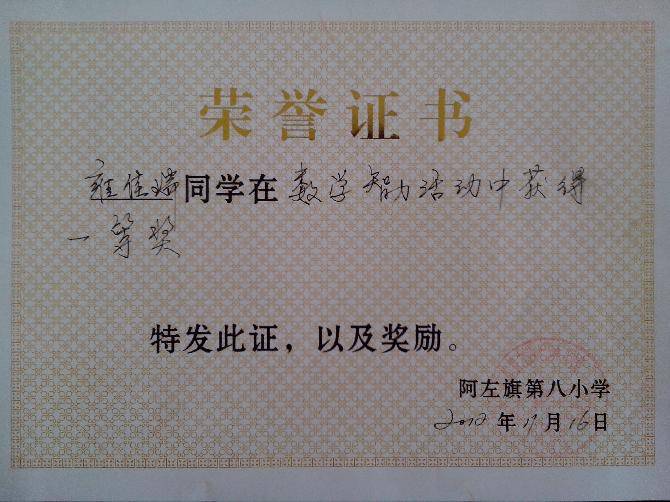 荣誉证书
雍佳瑞同学在数学智力活动中获得
一等奖
特发此证，以及奖励。
阿左旗第八小学
2012年11月16日